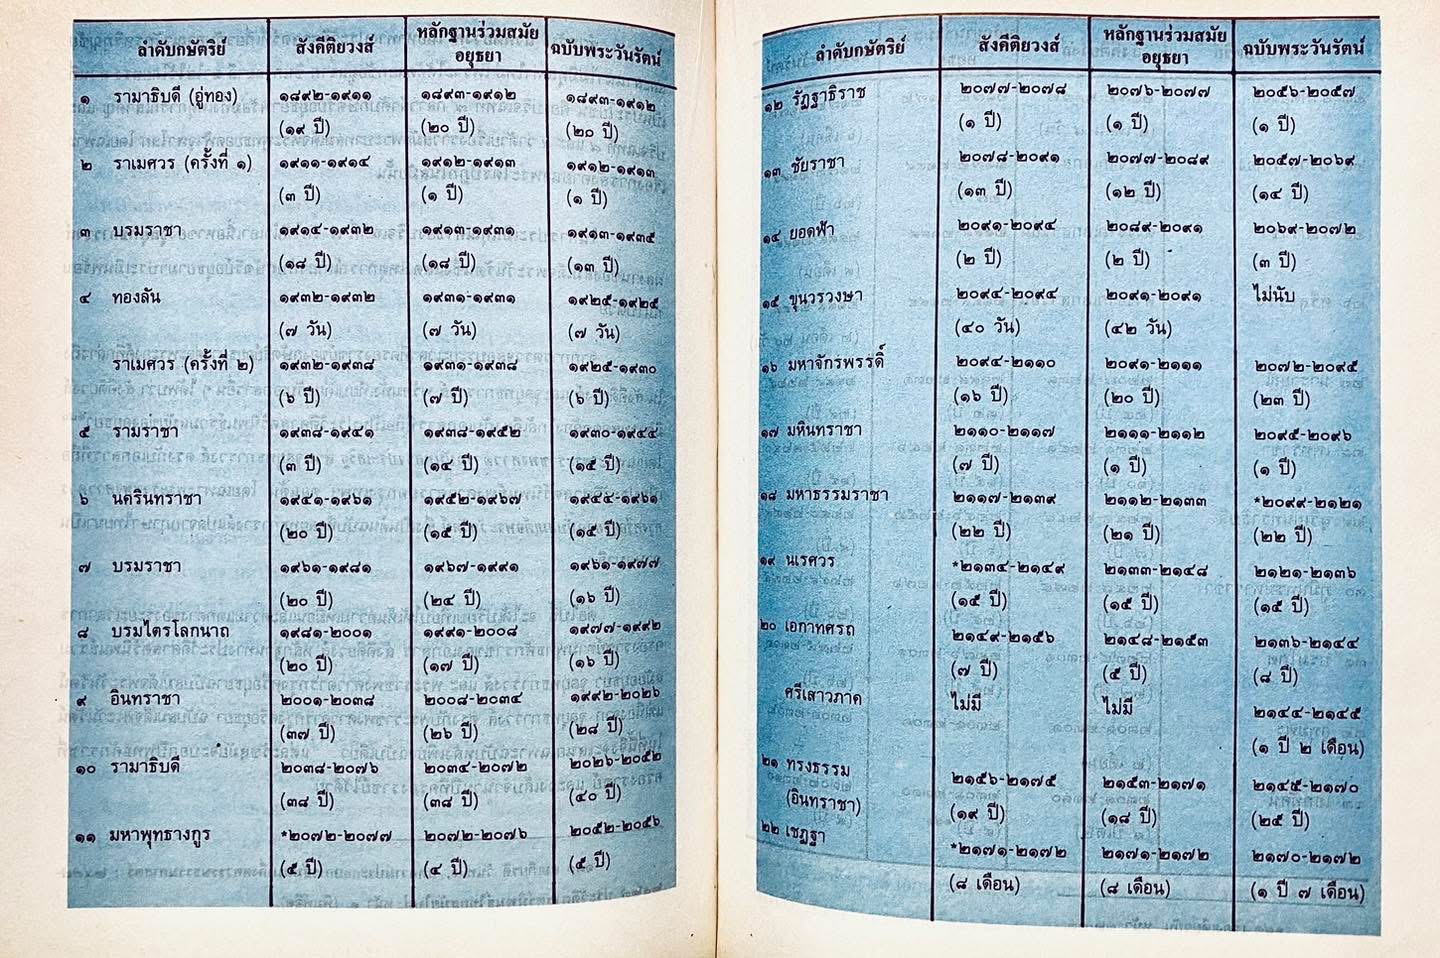 ลำดับกษัตริย์ สังคีติยวงส์ หลักฐานร่วมสมัยอยุธยา ฉบับพระวันรัตน์
๑ รามาธิบดี (อู่ทอง) ๑๘๙๒-๑๙๑๑ ๑๘๙๓-๑๙๑๒ ๑๘๙๓-๑๙๑๒
(๑๙ ปี) (๒๐ ปี) (๒๐ ปี)
๒ ราเมศวร (ครั้งที่ ๑) ๑๙๑๑-๑๙๑๔ ๑๙๑๒-๑๙๑๓ ๑๙๑๒-๑๙๑๓
(๓ ปี) (๑ ปี) (๑ ปี)
๓ บรมราชา ๑๙๑๔-๑๙๓๒ ๑๙๑๓-๑๙๓๑ ๑๙๑๓-๑๙๓๕
(๑๘ ปี) (๑๘ ปี) (๑๓ ปี)
๔ ทองลัน ๑๙๓๒-๑๙๓๒ ๑๙๓๑-๑๙๓๑ ๑๙๒๕-๑๙๒๕
(๗ วัน) (๗ วัน) (๗ วัน)
ราเมศวร (ครั้งที่ ๒) ๑๙๓๒-๑๙๓๘ ๑๙๓๑-๑๙๓๘ ๑๙๒๕-๑๙๓๐
(๖ ปี) (๗ ปี) (๖ ปี)
๕ รามราชา ๑๙๓๘-๑๙๔๑ ๑๙๓๘-๑๙๕๒ ๑๙๓๐-๑๙๔๔
(๓ ปี) (๑๔ ปี) (๑๕ ปี)
๖ นครินทราชา ๑๙๔๑-๑๙๖๑ ๑๙๕๒-๑๙๖๗ ๑๙๔๔-๑๙๖๑
(๒๐ ปี) (๑๕ ปี) (๑๕ ปี)
๗ บรมราชา ๑๙๖๑-๑๙๘๑ ๑๙๖๗-๑๙๙๑ ๑๙๖๑-๑๙๗๗
(๒๐ ปี) (๒๔ ปี) (๑๖ ปี)
๘ บรมไตรโลกนาถ ๑๙๘๑-๒๐๐๑ ๑๙๙๑-๒๐๐๘ ๑๙๗๗-๑๙๙๒
(๒๐ ปี) (๑๗ ปี) (๑๖ ปี)
๙ อินทราชา ๒๐๐๑-๒๐๓๘ ๒๐๐๘-๒๐๓๔ ๑๙๙๒-๒๐๒๖
(๓๗ ปี) (๒๖ ปี) (๒๘ ปี)
๑๐ รามาธิบดี ๒๐๓๘-๒๐๗๖ ๒๐๓๔-๒๐๗๒ ๒๐๒๖-๒๐๕๒
(๓๘ ปี) (๓๘ ปี) (๔๐ ปี)
๑๑ มหาพุทธางกูร *๒๐๗๒-๒๐๗๗ ๒๐๗๒-๒๐๗๖ ๒๐๕๒-๒๐๕๖
(๕ ปี) (๔ ปี) (๕ ปี)
ลำดับกษัตริย์ สังคีติยวงส์ หลักฐานร่วมสมัยอยุธยา ฉบับพระวันรัตน์
๑๒ รัฏฐาธิราช ๒๐๗๗-๒๐๗๘ ๒๐๗๖-๒๐๗๗ ๒๐๕๖-๒๐๕๗
(๑ ปี) (๑ ปี) (๑ ปี)
๑๓ ชัยราชา ๒๐๗๘-๒๐๙๑ ๒๐๗๗-๒๐๘๙ ๒๐๕๗-๒๐๖๙
(๑๓ ปี) (๑๒ ปี) (๑๔ ปี)
๑๔ ยอดฟ้า ๒๐๙๑-๒๐๙๔ ๒๐๘๙-๒๐๙๑ ๒๐๖๙-๒๐๗๒
(๒ ปี) (๒ ปี) (๓ ปี)
๑๕ ขุนวรวงษา ๒๐๙๔-๒๐๙๔ ๒๐๙๑-๒๐๙๑ ไม่นับ
(๔๐ วัน) (๔๒ วัน)
๑๖ มหาจักรพรรดิ์ ๒๐๙๔-๒๑๑๐ ๒๐๙๑-๒๑๑๑ ๒๐๗๒-๒๐๙๕
(๑๖ ปี) (๒๐ ปี) (๒๓ ปี)
๑๗ มหินทราชา ๒๑๑๐-๒๑๑๗ ๒๑๑๑-๒๑๑๒ ๒๐๙๕-๒๐๙๖
(๗ ปี) (๑ ปี) (๑ ปี)
๑๘ มหาธรรมราชา ๒๑๑๗-๒๑๓๙ ๒๑๑๒-๒๑๓๓ *๒๐๙๙-๒๑๒๑
(๒๒ ปี) (๒๑ ปี) (๒๒ ปี)
๑๙ นเรศวร *๒๑๓๔-๒๑๔๙ ๒๑๓๓-๒๑๔๘ ๒๑๒๑-๒๑๓๖
(๑๕ ปี) (๑๕ ปี) (๑๕ ปี)
๒๐ เอกาทศรถ ๒๑๔๙-๒๑๕๖ ๒๑๔๘-๒๑๕๓ ๒๑๓๖-๒๑๔๔
(๗ ปี) (๕ ปี) (๘ ปี)
ศรีเสาวภาค ไม่มี ไม่มี ๒๑๔๔-๒๑๔๕
(๑ ปี ๒ เดือน)
๒๑ ทรงธรรม ๒๑๕๖-๒๑๗๕ ๒๑๕๓-๒๑๗๑ ๒๑๔๕-๒๑๗๐
(อินทราชา) (๑๙ ปี) (๑๘ ปี) (๒๕ ปี)
๒๒ เชฏฐา *๒๑๗๑-๒๑๗๒ ๒๑๗๑-๒๑๗๒ ๒๑๗๐-๒๑๗๒
(๘ เดือน) (๘ เดือน) (๑ ปี ๗ เดือน)